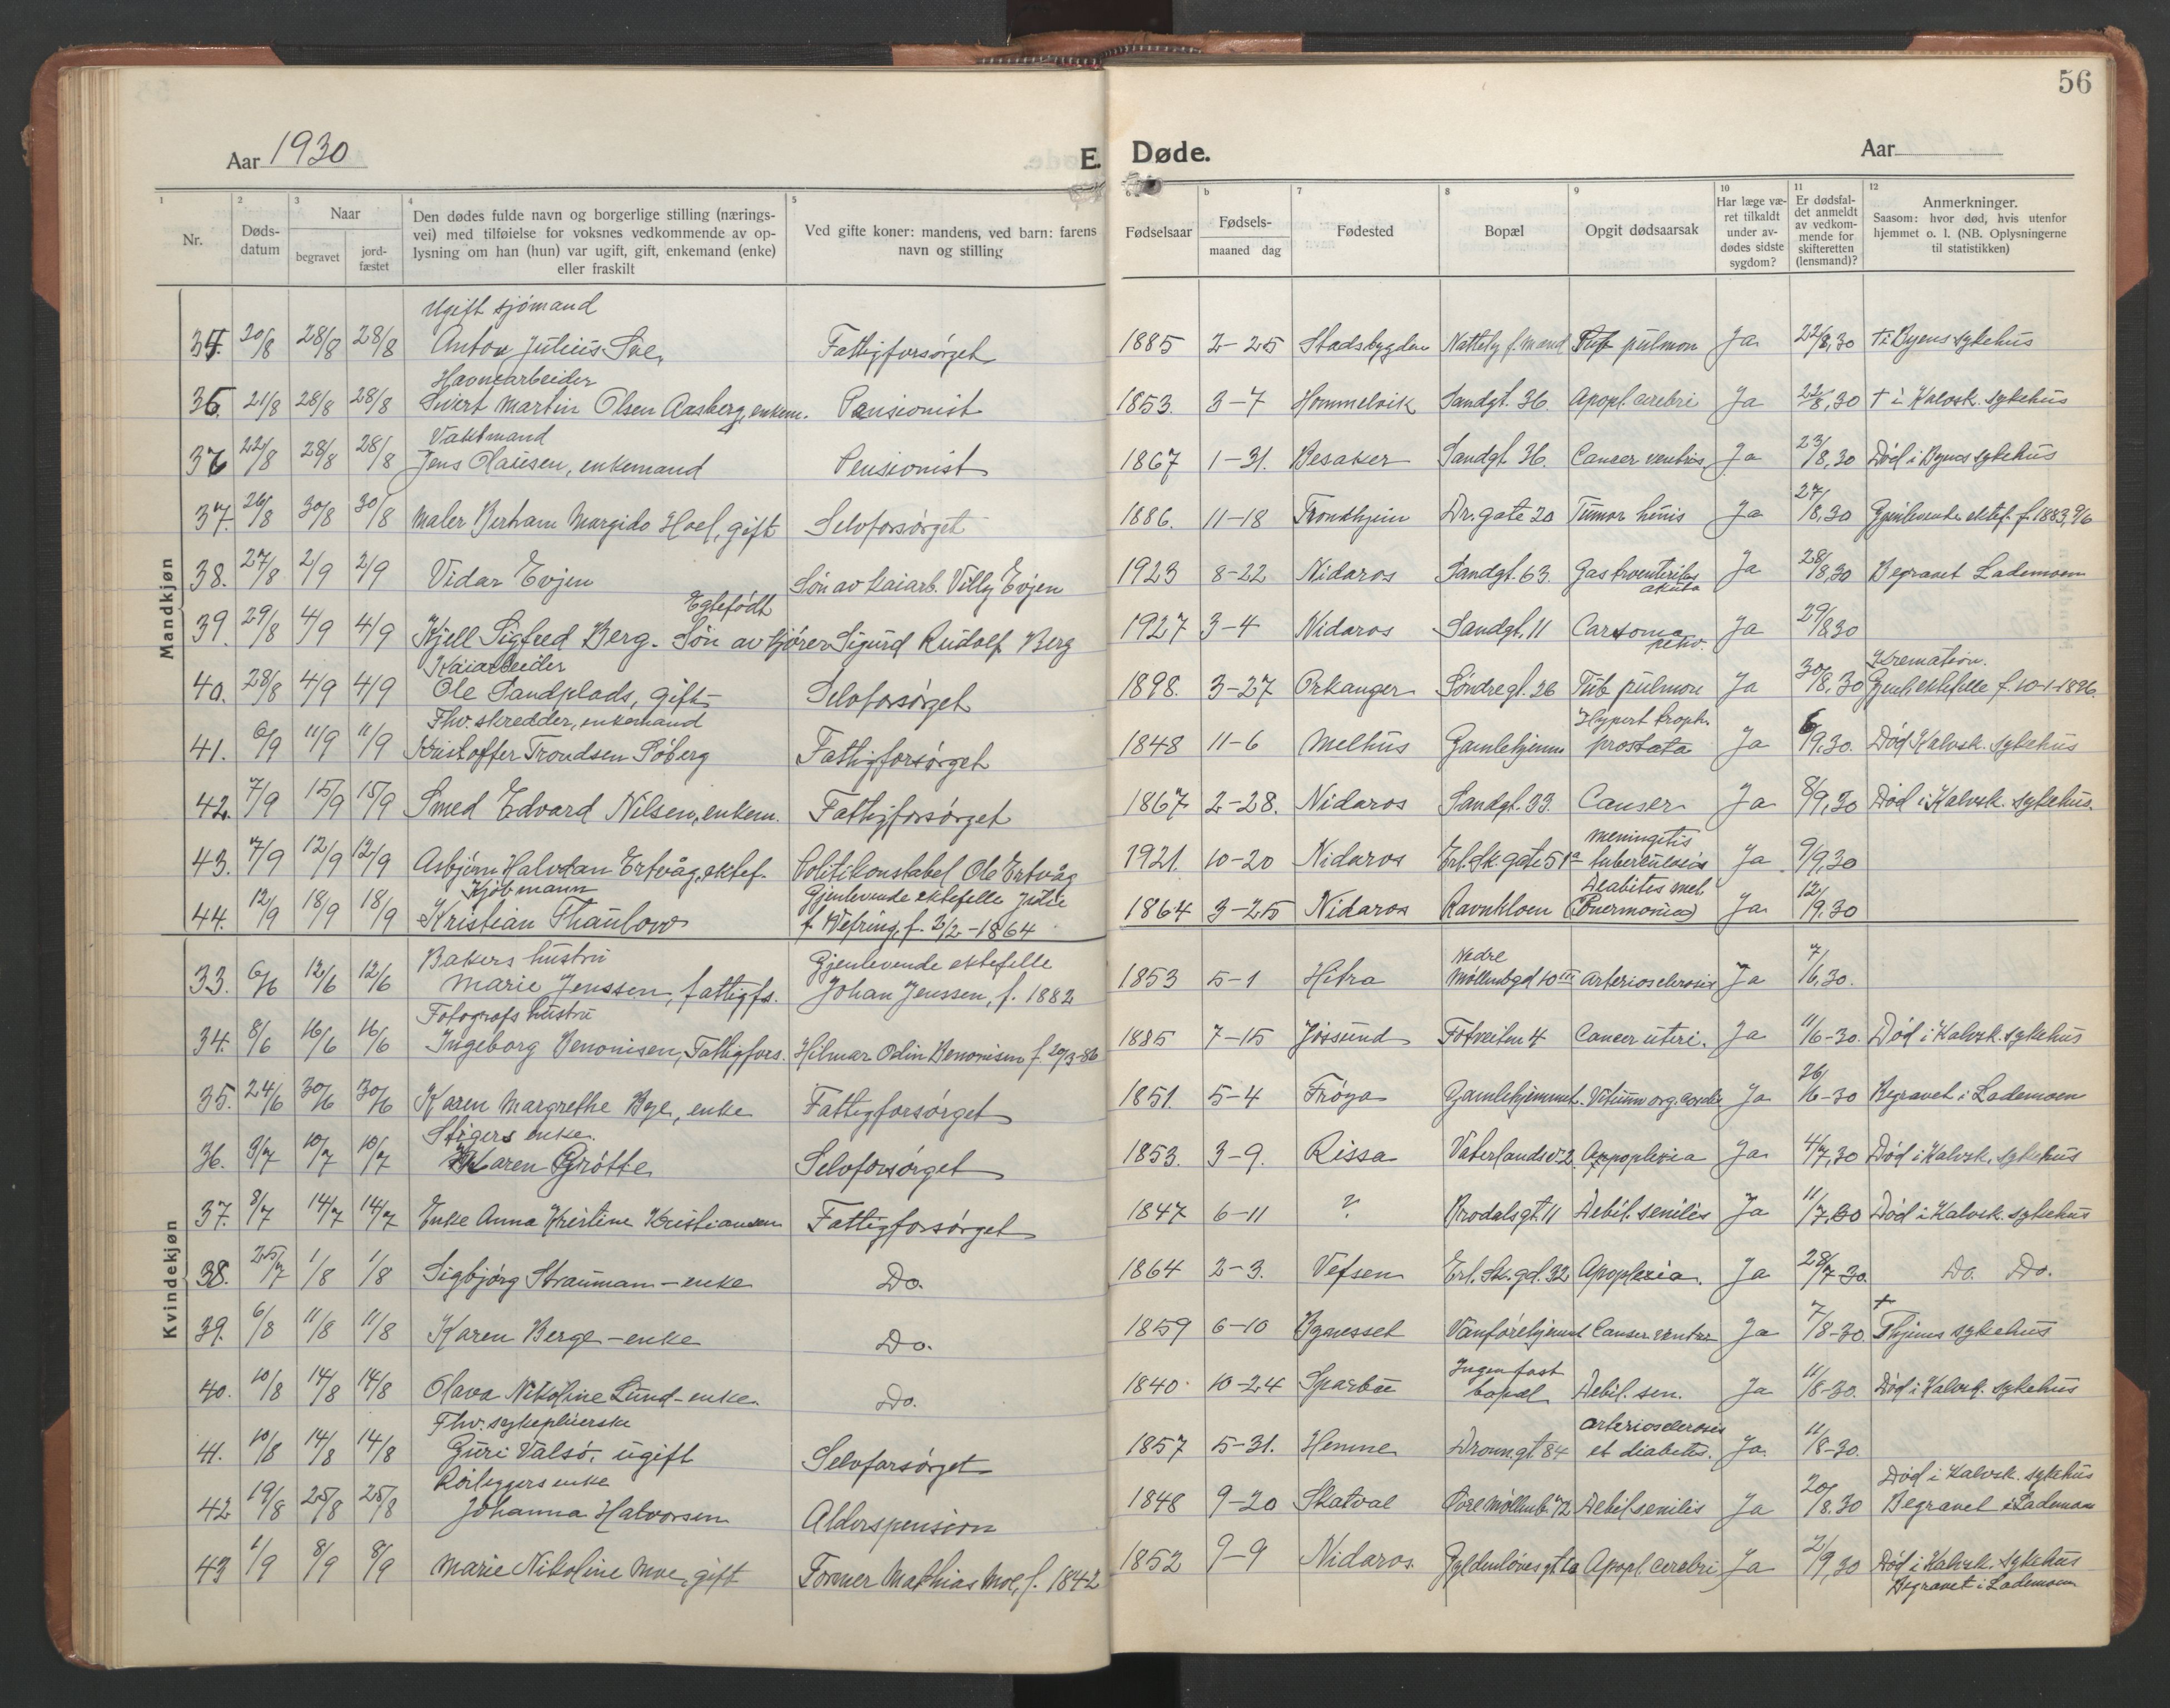 56
Aar 1930
E. Døde.
Aar
1 Nr.
2 Døds-datum
3 Naar begravet jord-fæstet
4 Den dødes fulde navn og borgerlige stilling (nærings-
vei) med tilføielse for voksnes vedkommende av op-
lysning om han (hun) var ugift, gift, enkemand (enke)
eller fraskilt
5 Ved gifte koner: mandens, ved barn: farens
navn og stilling
Fødselsaar
b Fødsels-
maaned dag
7 Fødested
8 Bopæl
9 Opgit dødsaarsak
10 Har læge væ-
ret tilkaldt
under av-
dødes sidste
sygdom?
11 Er dødsfal-
det anmeldt
av vedkom-
mende for
skifteretten
(lensmand)?
12 Anmerkninger.
Saasom: hvor død, hvis utenfor
hjemmet o. l. (NB. Oplysningerne
til statistikken)
Mandkjøn
Ugift sjømand
20/8 28/8 28/8 Anton Julius Sve, Fattigforsørget 1885 2-25 Stadsbygden Nattely f. mænd Tub pulmon Ja 22/8,30 † i Byens sykehus
Havnearbeider
21/8 28/8 28/8 Sivert Martin Olsen Aasberg, enkem. Pensionist 1853. 3-7 Hommelvik Sandgt. 36 Apopl. cerebri Ja 22/8,30 † i Kalvsk. sykehus
Vaktmand
36 22/8 28/8 28/8 Jens Olausen, enkemand Pensionist 1867 1-31. Besaker Sandgt. 36. Cancer ventris, Ja 23/8,30 Død i Byens sykehus
37. 26/8 30/8 30/8 Maler Bertram Margido Hoel, gift Selvforsørget 1886. 11-18 Trondhjem Dr. gate 20 Tumor Ja 27/8,30 Gjenlevende ektef. f. 1883, 9/6
38. 27/8 2/9 2/9 Vidar Evjen Søn av kaiarb. Villy Evjen 1923 8-22 Nidaros Sandgt. 63. Gastroenteritis akuta Ja 28/8,30 Begravet Lademoen
Egtefødt
39. 29/8 4/9 4/9 Kjell Sigfred Berg. Søn av kjører Sigurd Rudolf Berg 1927 3-4 Nidaros Sandgt. 11 Ja 29/8 30
Kaiarbeider
Kremation.
40. 28/8 4/9 4/9 Ole Sandplads, gift Selvforsørget 1898. 3-27 Orkanger Søndregt. 26 Tub pulmon Ja 30/8,30 Gjenl. ektefelle f. 10-1-1896.
Fhv. skredder, enkemand
Hypert troph.
41. 6/9 11/9 11/9 Kristoffer Trondsen Søberg Fattigforsørget 1848 11-6 Melhus Gamlehjemm prostata Ja 6/9,30. Død Kalvsk. sykehus
42. 7/9 15/9 15/9 Smed Edvard Nilsen, enkem. Fattigforsørget 1867 2-28. Nidaros Sandgt. 33 Canser Ja 8/9,30 Død i Kalvsk. sykehus.
Meningitis
43. 7/9 12/9 12/9 Asbjørn Halvdan Ertvåg, ektef. Politikonstabel Ole Ertvåg 1921. 10-20 Nidaros Erl. Sk. gate 51a tuberculosis Ja 9/9,30
Kjøbmann
Gjenlevende ektefelle Julie
Diabites mel.
44. 12/9 18/9 18/9 Kristian Thaulow f. Wefring, f. 3/2-1864 1864 3-25 Nidaros Ravnkloen (Pnermonia) Ja 12/9,30
Kvindekjøn
Bakers hustru
Gjenlevende ektefelle
Nedre
33. 6/6 12/6 12/6 Marie Jenssen, fattigfs. Johan Jenssen, f. 1882 1853 5-1 Hitra Møllenbgd 10 III Arteriosclerosis Ja 7/6,30.
Fotografs hustru
34. 8/6 16/6 16/6 Ingeborg Benonisen, Fattigfors. Hilmar Odin Benonisen f. 20/3-86 1885 7-15 Jøssund Fotveiten 4 Cancer uteri. Ja 11/6-30. Død i Kalvsk. sykehus
35. 24/6 30/6 30/6 Karen Margrethe Bye, enke Fattigforsørget 1851. 5-4 Frøya Gamlehjemmet. Vitium org. cordis Ja 26/6-30 Begravet i Lademoen
Stigers enke.
36. 3/7 10/7 10/7 Karen Grøtte Selvforsørget 1853. 3-9. Rissa Vaterlandsv. 2. Appoplexia Ja 4/7,30 Død i Kalvsk. sykehus
37. 8/7 14/7 14/7 Enke Anna Kristine Kristiansen Fattigforsørget 1847 6-11 ? Brodalsgt. 11 Debil. senilis Ja 11/7,30 Død i Kalvsk. sykehus
38. 25/7 1/8 1/8 Sigbjørg Straumam - enke Do. 1864 2-3. Vefsen Erl. Sk. gd. 32 Apoplexia. Ja 28/7 30. Do. Do.
39. 6/8 11/8 11/8 Karen Berge - enke Do. 1859 6-10 Bynesset Vanførehjemmet Canser ventric Ja 7/8-30. † Thjems sykehus
Ingen fast
40. 10/8 14/8 14/8 Olava Nikoline Lund - enke. Do. 1840. 10-24 Sparbu bopæl Debil. sen. Ja 11/8-30. Død i Kalvsk. sykehus
Fhv. sykepleierske
Arteriosclerosis
41. 10/8 14/8 14/8 Guri Valsø, ugift Selvforsørget 1857 5-31. Hemne Dronn.gt. 84 et diabetes. Ja. 11/8-30.
Rørleggers enke
Død i Kalvsk. sykehus
42 19/8 25/8 25/8 Johanna Halvorsen Alderspension 1848 9-20 Skatval Øvre Møllenb. 72 Debil senilis Ja 20/8.30 Begravet i Lademoen
43 1/9 8/9 8/9 Marie Nikoline Moe, gift Former Mathias Moe, f. 1842 1852 9-9 Nidaros. Gyldenløvesgt Apopl. cerebri Ja 2/9,30 Død i Kalvsk. sykehus
Begravet i Lademoen